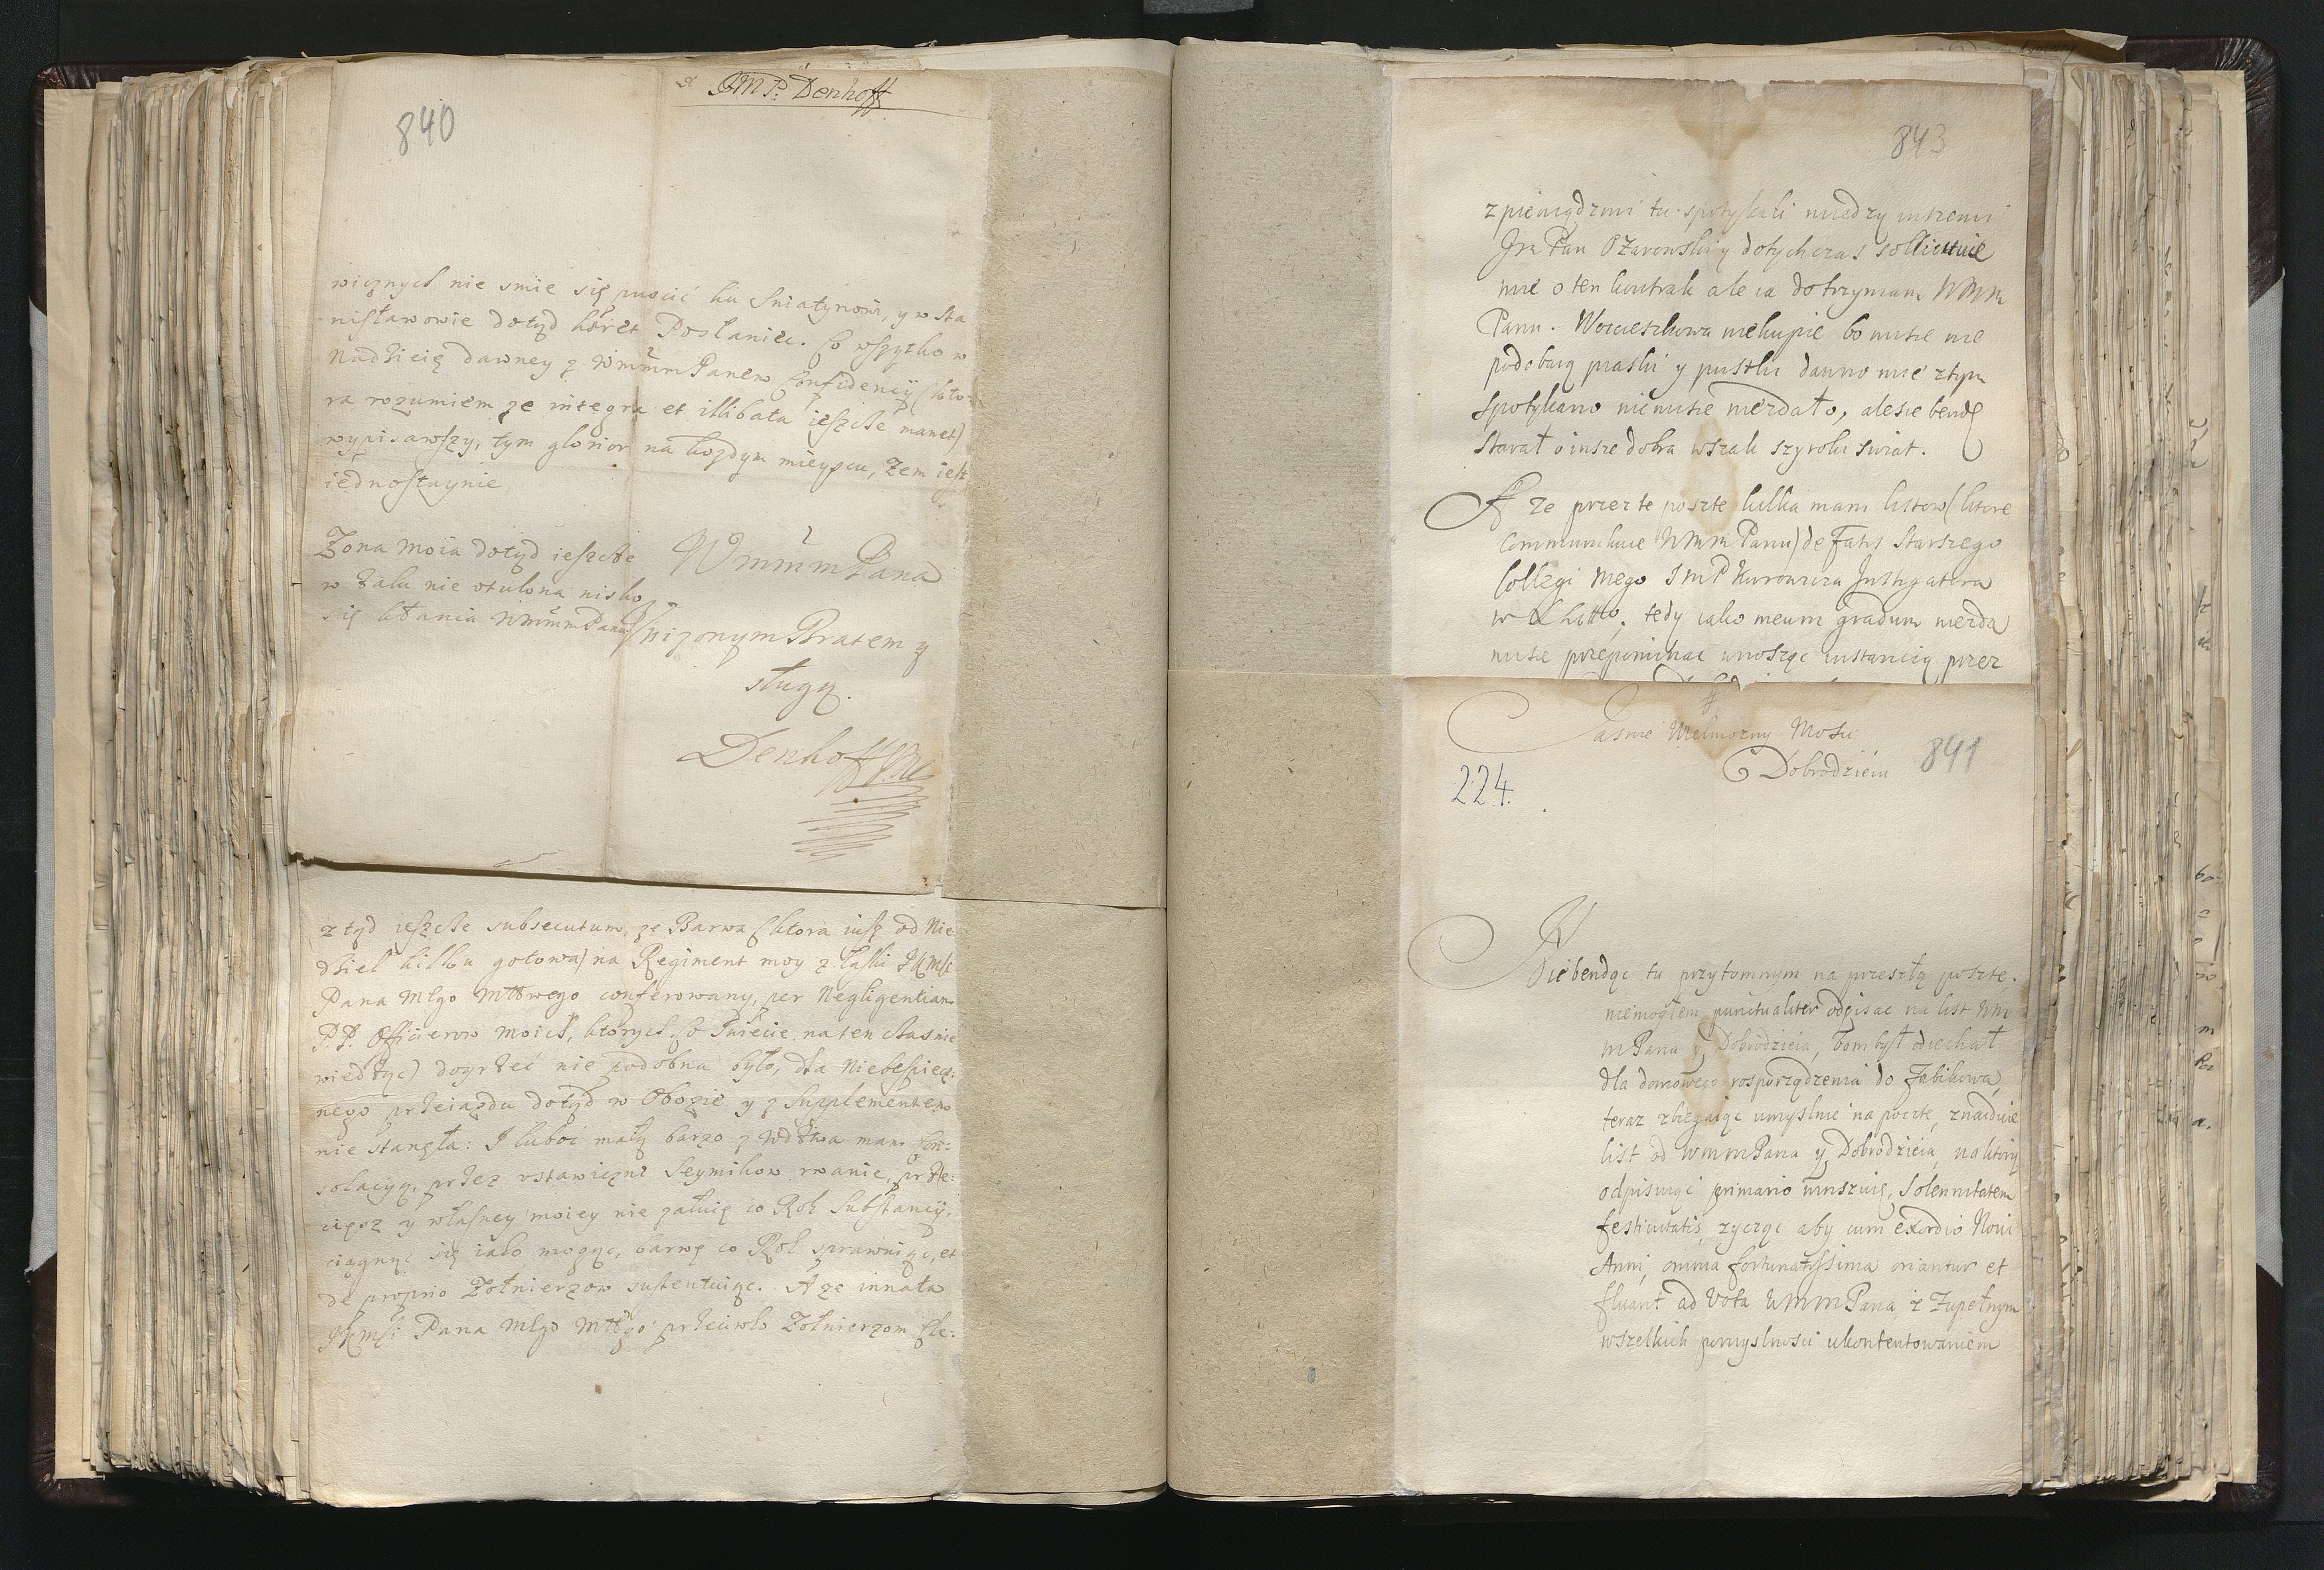 JMP: Denhoff
840
wicznych nie smie się puscić ku Sniatynowi, y w Sta
nisławowie dotąd hæret Posłaniec. Co wszytko w
Nadzieię dawney z WmmmPanem Confidencÿ (kto-
ra rozumiem ze integra et illibata ieszcze manet)
wypisawszy, tym glorior na kozdym mieyscu, Zem iest
iednostaynie
Zona moia dotąd ieszcze
w zalu nie otulona nisko
się kłania WmmmPanu
WmmmPana
Vnizonym Bratem y
sługą.
Denhoff
z tąd ieszcze subsecutum, ze Barwa (ktora iusz od Nie
dziel kilku gotowa) na Regiment moy z łaski JKMsci
Pana Młgo Mttwego conferowany, per Negligentiam
P.P. Officierow moich, ktorych
wiedząc) doyrzeć nie podobna było, dla Niebespiecz:
nego przeiazdu dotąd w Obozie y z Supplementem
nie stanęła: I luboć małą barzo z mam Con:
solacyą, przez vstawiczne Seymikow rwanie, prze:
ciesz y własney moiey nie załuię co Rok Substancÿ,
ciągnąc się iako mogąc, barwę co Rok sprawuiąc, et
de proprio Zołnierzow sustentuiąc. A ze innata
JKMsci Pana Młgo Mttgo przeciwko Zołnierzom Cle:
843
z pieniądzmi tu spotykali miedzy inszemi
Jm Pan Ozarowski y dotychczas sollicituie
mie o ten kontrak ale ia dotrzymam Wmm
Panu. Woicieszkowa niekupie bo misie nie
podobaią piaski y pustki dawno mie ztym
spotykano niemisie niezdało, alesie bende
starał o insze dobra wszak szyroki swiat.
A ze przez te poszte kilka mam listow (litore
communikuie WmmPanu) de Fatis Starszego
Collegi mego JmP Instigatora
w tedy iako meum gradum niezda
misie przepominac wnosząc instancią przez
Jasnie Wielmozny Mosci
Dobrodzieiu
841
224.
Niebendąc tu przytomnym na przeszłą poszte.
niemogłem punctualiter odpisac na list Wm
mPana y Dobrodzieia, bom był odiechał
dla domowego rosporządzenia do Fabikowa,
teraz zbiegaiąc umyslnie na poczte, znaiduie
list od WmmPana y Dobrodzieia, na ktory
odpisuiąc primario winszuię, Solennitatem
festivitatis, zycząc aby cum exordio Novi
Anni, omnia fortunatissima oriantur et
fluant ad Vota WmmPana z Zupełnym
wszelkich pomyslnosci ukontentowaniem